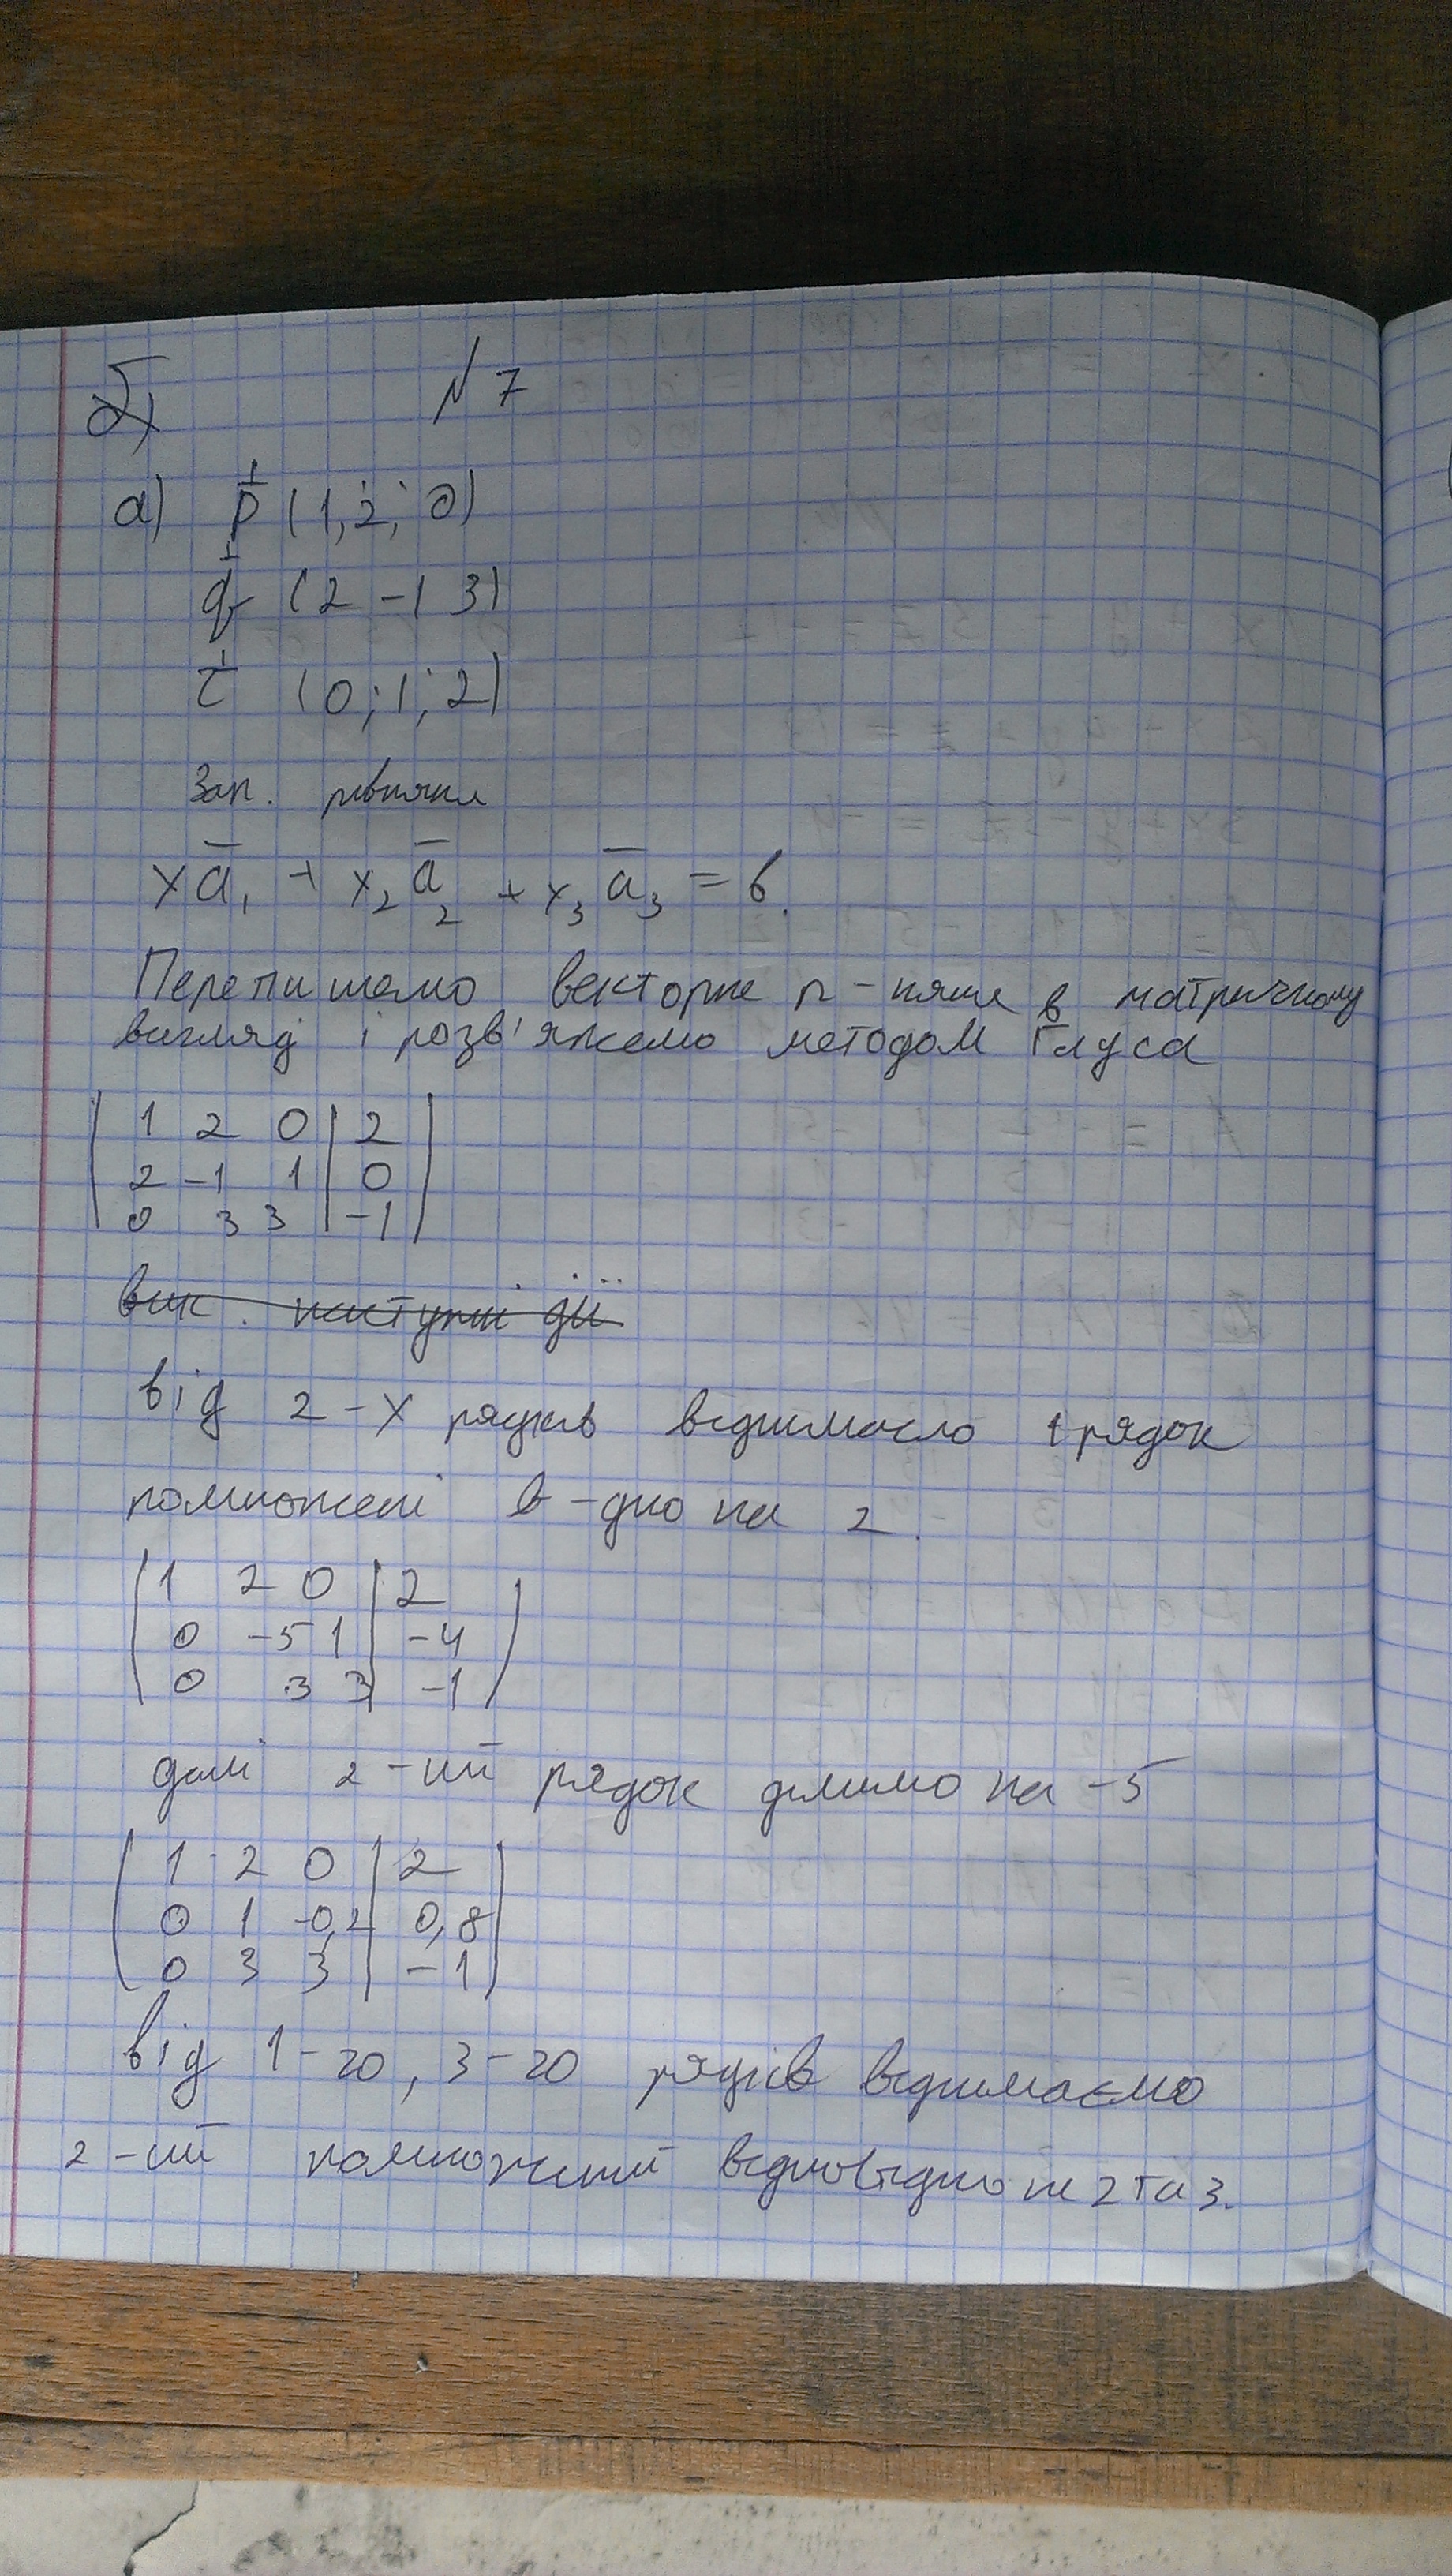 №7
а) p (1; 2; 0)
q (2 -1 3)
τ (0; 1; 2)
Зап. рівняння
x a₁ + x₂ a₂ + x₃ a₃ = b.
Перепишемо векторне р-няня в матричному
вигляді і розв'яжемо методом Гауса
| 1 2 0 | 2 |
| 2 -1 1 | 0 |
| 0 3 3 | -1 |
вик. наступні дії
від 2-х рядків віднімаємо 1 рядок
помножені в-дно на 2.
( 1 2 0 | 2 )
( 0 -5 1 | -4 )
( 0 3 3 | -1 )
далі 2-ий рядок ділимо на -5
( 1 2 0 | 2 )
( 0 1 -0,2 | 0,8 )
( 0 3 3 | -1 )
від 1-го, 3-го рядків віднімаємо
2-ий помножений відповідно на 2 та 3.